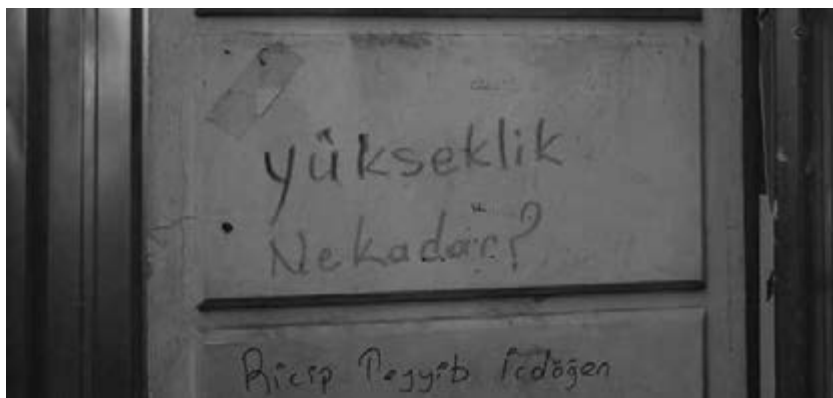 yükseklik
Nekadar?
Ricip Teyyib İcdöğen